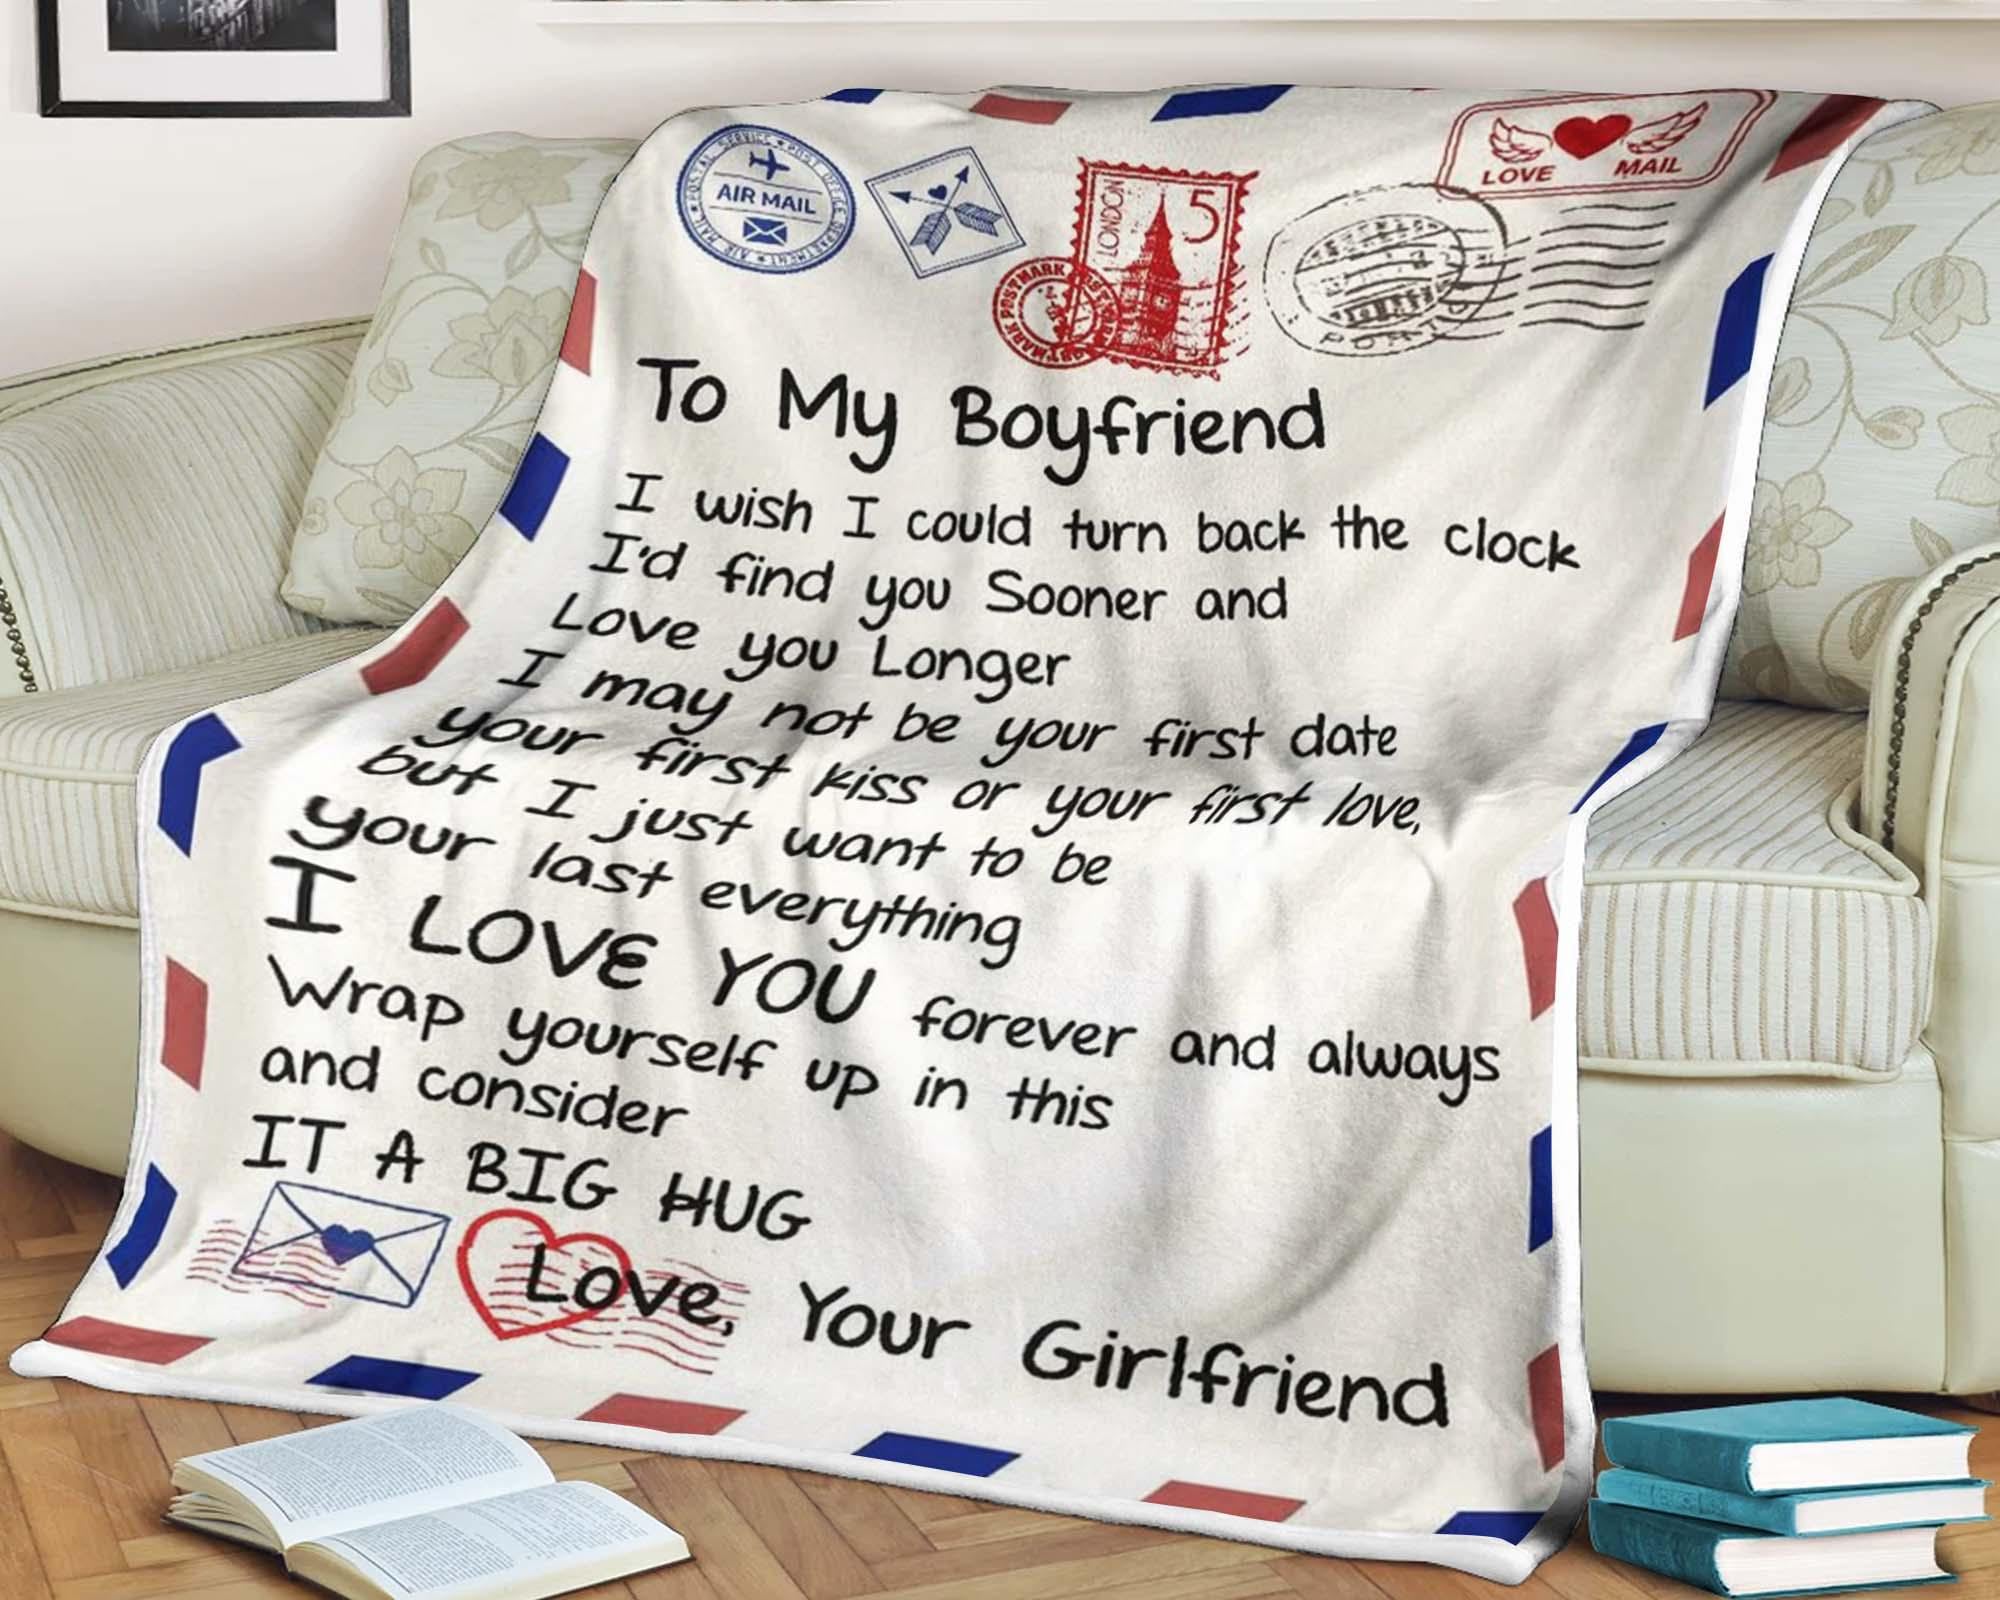 POSTAL SERVICE ★ POST OFFICE DEPARTMENT ★ AIR MAIL ★
AIR MAIL
LONDON
5
POSTMARK
LOVE MAIL
To My Boyfriend
I wish I could turn back the clock
I'd find you Sooner and
Love you Longer
I may not be your first date
your first kiss or your first love,
but I just want to be
your last everything
I LOVE YOU forever and always
Wrap yourself up in this
and consider
IT A BIG HUG
Love, Your Girlfriend